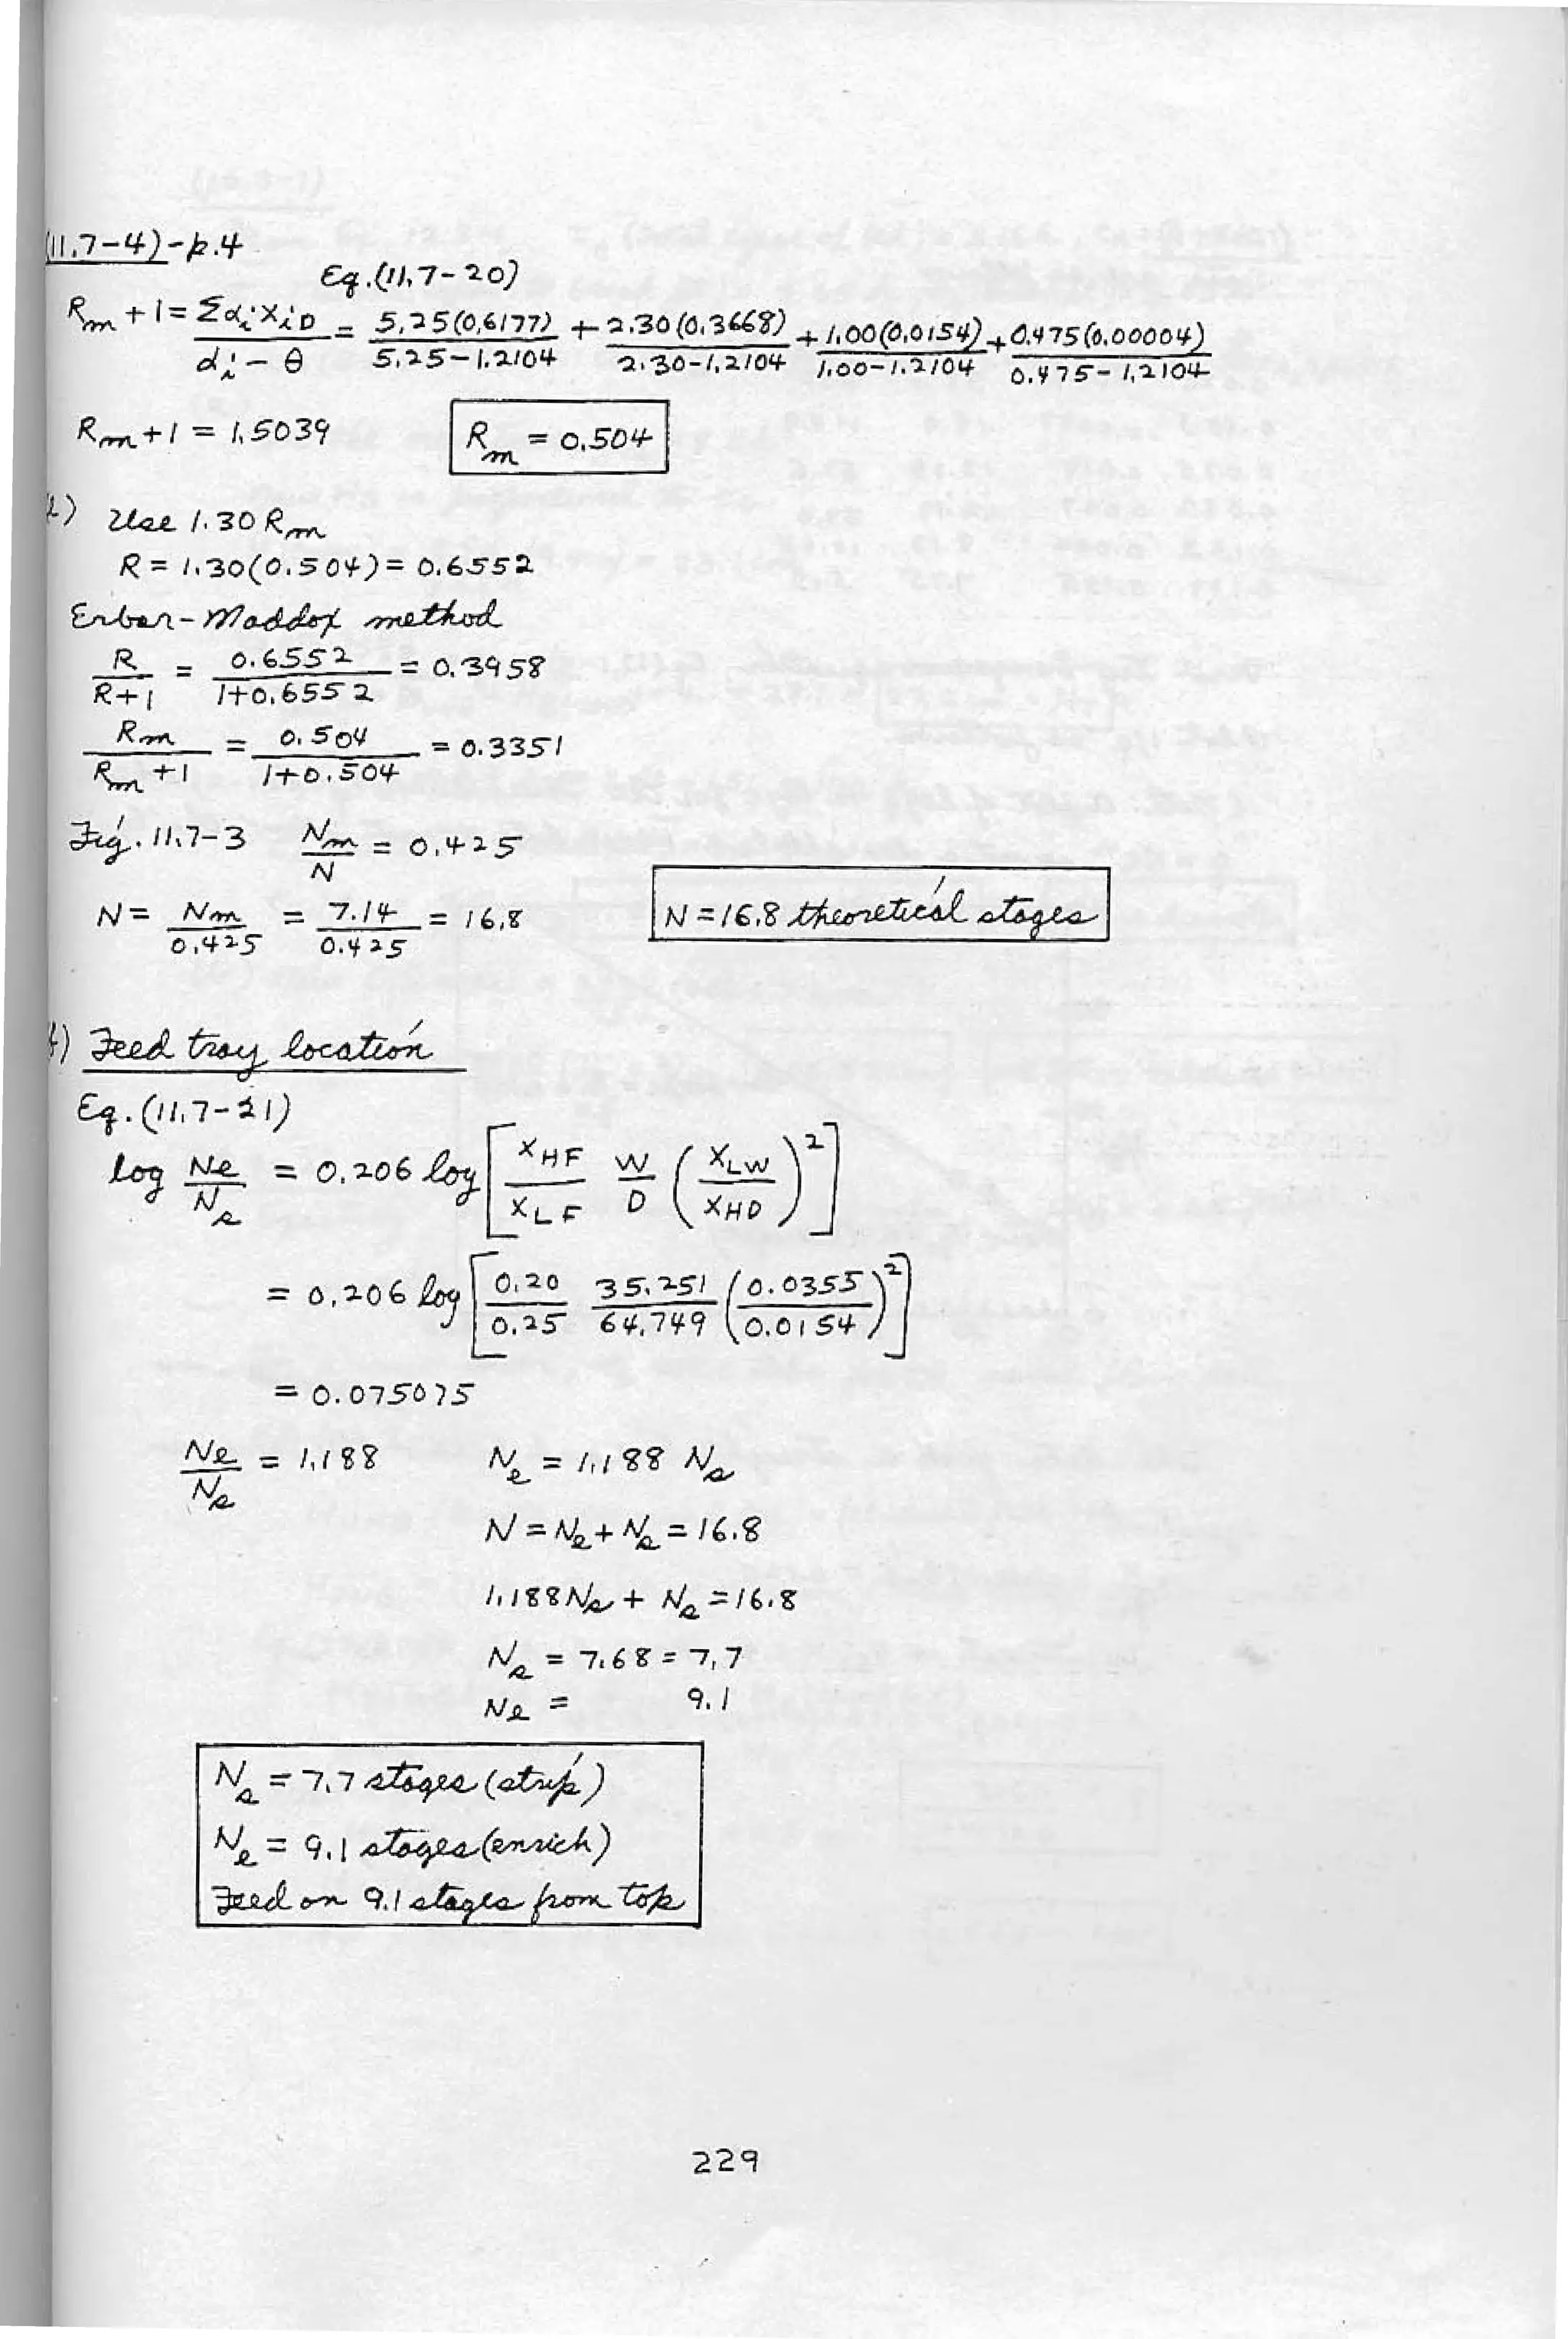 (11.7-4)-p.4
Eq.(11.7-20)
Rm + 1 = Σαi xiD / αi - θ = 5.25(0.6177) / 5.25-1.2104 + 2.30(0.3668) / 2.30-1.2104 + 1.00(0.0154) / 1.00-1.2104 + 0.475(0.00004) / 0.475-1.2104
Rm + 1 = 1.5039 Rm = 0.504
) Use 1.30 Rm
R = 1.30(0.504) = 0.6552
Erbar-Maddox method
R / R+1 = 0.6552 / 1+0.6552 = 0.3958
Rm / Rm+1 = 0.504 / 1+0.504 = 0.3351
Fig. 11.7-3 Nm / N = 0.425
N = Nm / 0.425 = 7.14 / 0.425 = 16.8 N = 16.8 theoretical stages
f) Feed tray location
Eq.(11.7-21)
log Ne / Ns = 0.206 log [ xHF / xLF W / D ( xLW / xHD )² ]
= 0.206 log [ 0.20 / 0.25 35.251 / 64.749 ( 0.0355 / 0.0154 )² ]
= 0.075075
Ne / Ns = 1.188 Ne = 1.188 Ns
N = Ne + Ns = 16.8
1.188Ns + Ns = 16.8
Ns = 7.68 = 7.7
Ne = 9.1
Ns = 7.7 stages (strip)
Ne = 9.1 stages (enrich)
Feed on 9.1 stages from top
229